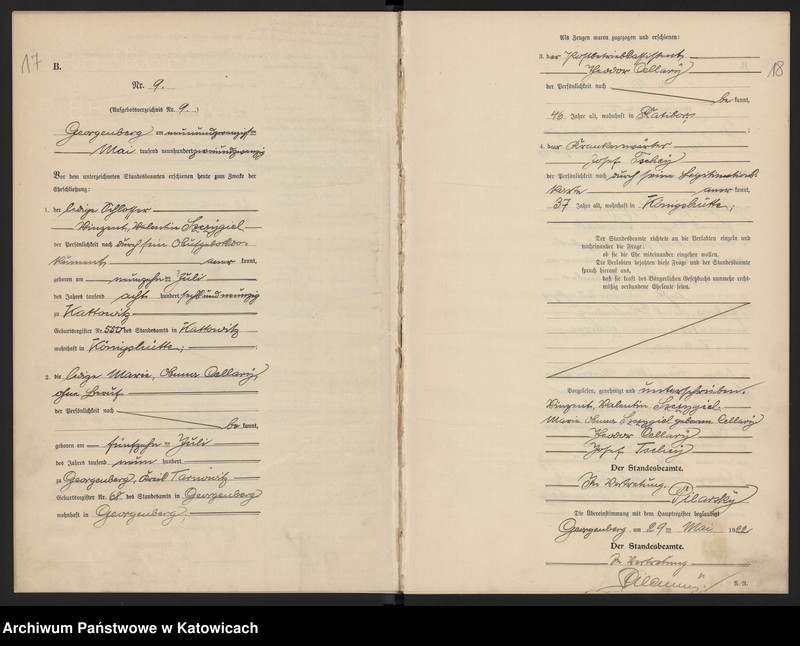 17
B.
Nr. 9.
(Aufgebotsverzeichnis Nr. 9.)
Georgenberg am neunundzwanzigsten
Mai tausend neunhundertzweiundzwanzig
Vor dem unterzeichneten Standesbeamten erschienen heute zum Zwecke der
Eheschließung:
1. der ledige Schlosser
Vinzent, Valentin Szczygiel
der Persönlichkeit nach durch sein Aufgebotsdo-
kument aner kannt,
geboren am neunzehn= Juli
des Jahres tausend acht hundert sechsundneunzig
zu Kattowitz
Geburtsregister Nr. 550 des Standesamts in Kattowitz
wohnhaft in Königshütte;
2. die ledige Marie, Anna Cellary,
ohne Beruf
der Persönlichkeit nach
be kannt,
geboren am fünfzehn= Juli
des Jahres tausend neun hundert
zu Georgenberg, Kreis Tarnowitz
Geburtsregister Nr. 68 des Standesamts in Georgenberg
wohnhaft in Georgenberg.
18
Als Zeugen waren zugezogen und erschienen:
3. der Postbetriebsassistent
Theodor Cellary
der Persönlichkeit nach
be kannt,
46 Jahre alt, wohnhaft in Ratibor;
4. der Krankenwärter
Josef
der Persönlichkeit nach durch seine Legitimations
karte aner kannt,
37 Jahre alt, wohnhaft in Königshütte;
Der Standesbeamte richtete an die Verlobten einzeln und
nacheinander die Frage:
ob sie die Ehe miteinander eingehen wollen.
Die Verlobten bejahten diese Frage und der Standesbeamte
sprach hierauf aus,
daß sie kraft des Bürgerlichen Gesetzbuchs nunmehr recht-
mäßig verbundene Eheleute seien.
Vorgelesen, genehmigt und unterschrieben.
Vinzent, Valentin Szczygiel.
Marie Anna Szczygiel geborene Cellary
Theodor Cellary
Josef
Der Standesbeamte.
In Vertretung.
Pilarsky
Die Übereinstimmung mit dem Hauptregister beglaubigt
Georgenberg, am 29ten Mai 1922
Der Standesbeamte.
In Vertretung
B. B.
Archiwum Państwowe w Katowicach